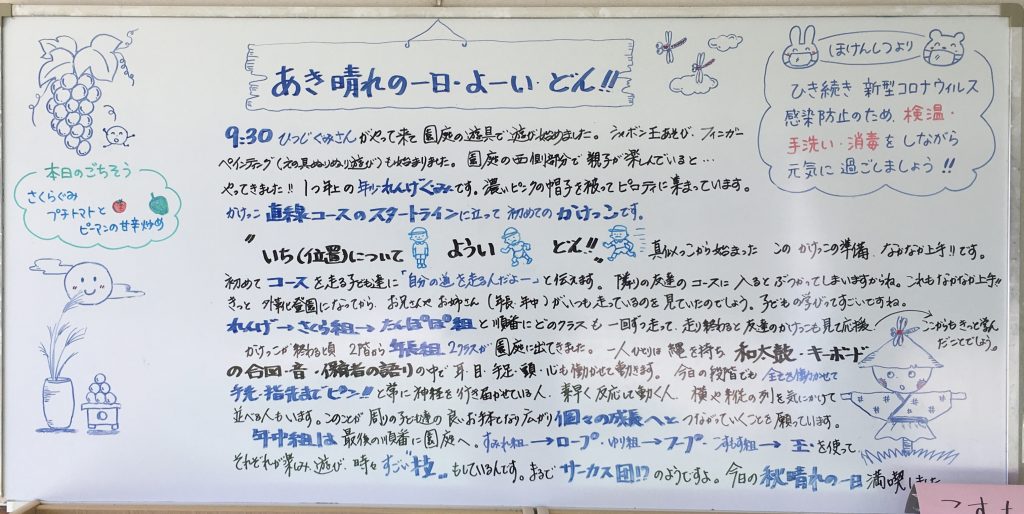 あき晴れの一日・よーい・どん!!
ほけんしつより
ひき続き 新型コロナウィルス
感染防止のため、検温・
手洗い・消毒をしながら
元気に過ごしましょう!!
本日のごちそう
さくらぐみ
プチトマトと
ピーマンの甘辛炒め
9:30 ひつじぐみさんがやって来て園庭の遊具で遊び始めました。シャボン玉あそび、フィンガー
ペインティング(絵具ぬりぬり遊び)も始まりました。園庭の西側部分で親子が楽しんでいると…
やってきました!! 1つ年上の年少れんげぐみです。濃いピンクの帽子を被ってピロティに集まっています。
かけっこ 直線コースのスタートラインに立って 初めてのかけっこです。
"いち(位置)について ようい どん!!" 真似っこから始まった このかけっこの準備、なかなか上手です。
初めてコースを走る子ども達に「自分の道を走るんだよー」と伝えます。隣りの友達のコースに入るとぶつかってしまいますからね。これもなかなか上手!!
きっと 外で登園になってから、お兄さんやお姉さん(年長・年中)がいつも走っているのを見ていたのでしょう。子どもの学びってすごいですね。
れんげ→さくら組→たんぽぽ組と順番にどのクラスも一回ずつ走って、走り終わると友達のかけっこも見て応援。
ここからもきっと学ん
だことでしょう。
かけっこが終わる頃 2階から年長組2クラスが園庭に出てきました。一人ひとりは縄を持ち 和太鼓・キーボード
の合図・音・保育者の語りの中で耳・目・手足・頭・心も働かせて動きます。今日の段階でも 全てを働かせて
手先・指先までピーン!!と常に神経を行き届かせている人、素早く反応し動く人、横や前後の列を気にかけて
並べる人もいます。このことが 周りの子ども達の良いお手本となり広がり 個々の成長へとつながっていくことを願っています。
年中組は 最後の順番に園庭へ。すみれ組→ロープ・ゆり組→フープ・こすもす組→玉・を使って
それぞれが楽しみ、遊び、時々すごい"技"もしているんです。まるでサーカス団!?のようですよ。今日の秋晴れの一日 満喫しました
こすも